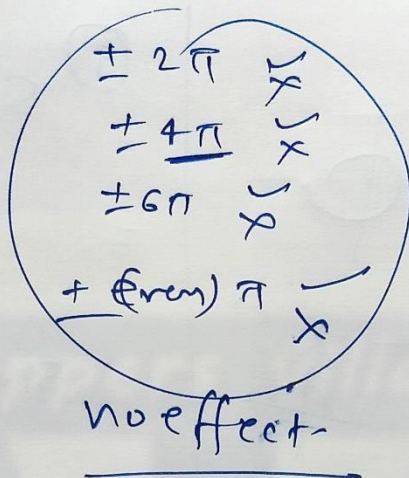 ± 2π
± 4π
± 6π
± (Even) π
no effect-